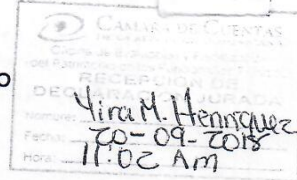 CAMARA DE CUENTAS
RECEPCIÓN DE
DECLARACIÓN JURADA
Nombre: Yira M. Henriquez
Fecha: 20-09-2018
Hora: 11:02 AM